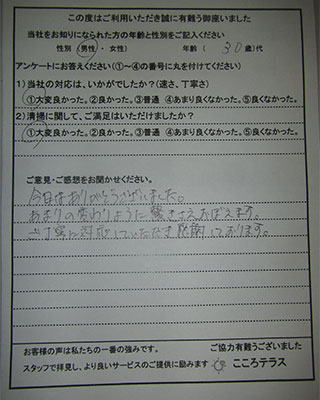 この度はご利用いただき誠に有難う御座いました
当社をお知りになられた方の年齢と性別をご記入ください
性別（男性・女性）　年齢（30歳）代
アンケートにお答えください(①〜④の番号に丸を付けてください)
1）当社の対応は、いかがでしたか？(速さ、丁寧さ)
①大変良かった。②良かった。③普通 ④あまり良くなかった。⑤良くなかった。
2）清掃に関して、ご満足はいただけましたか？
①大変良かった。②良かった。③普通 ④あまり良くなかった。⑤良くなかった。
ご意見・ご感想をお聞かせください。
今日はありがとうございました。
あまりの変わりように驚きさえおぼえます。
ご丁寧に対応していただき感謝しております。
お客様の声は私たちの一番の強みです。
ご協力有難うございました
スタッフで拝見し、より良いサービスのご提供に励みます
こころテラス